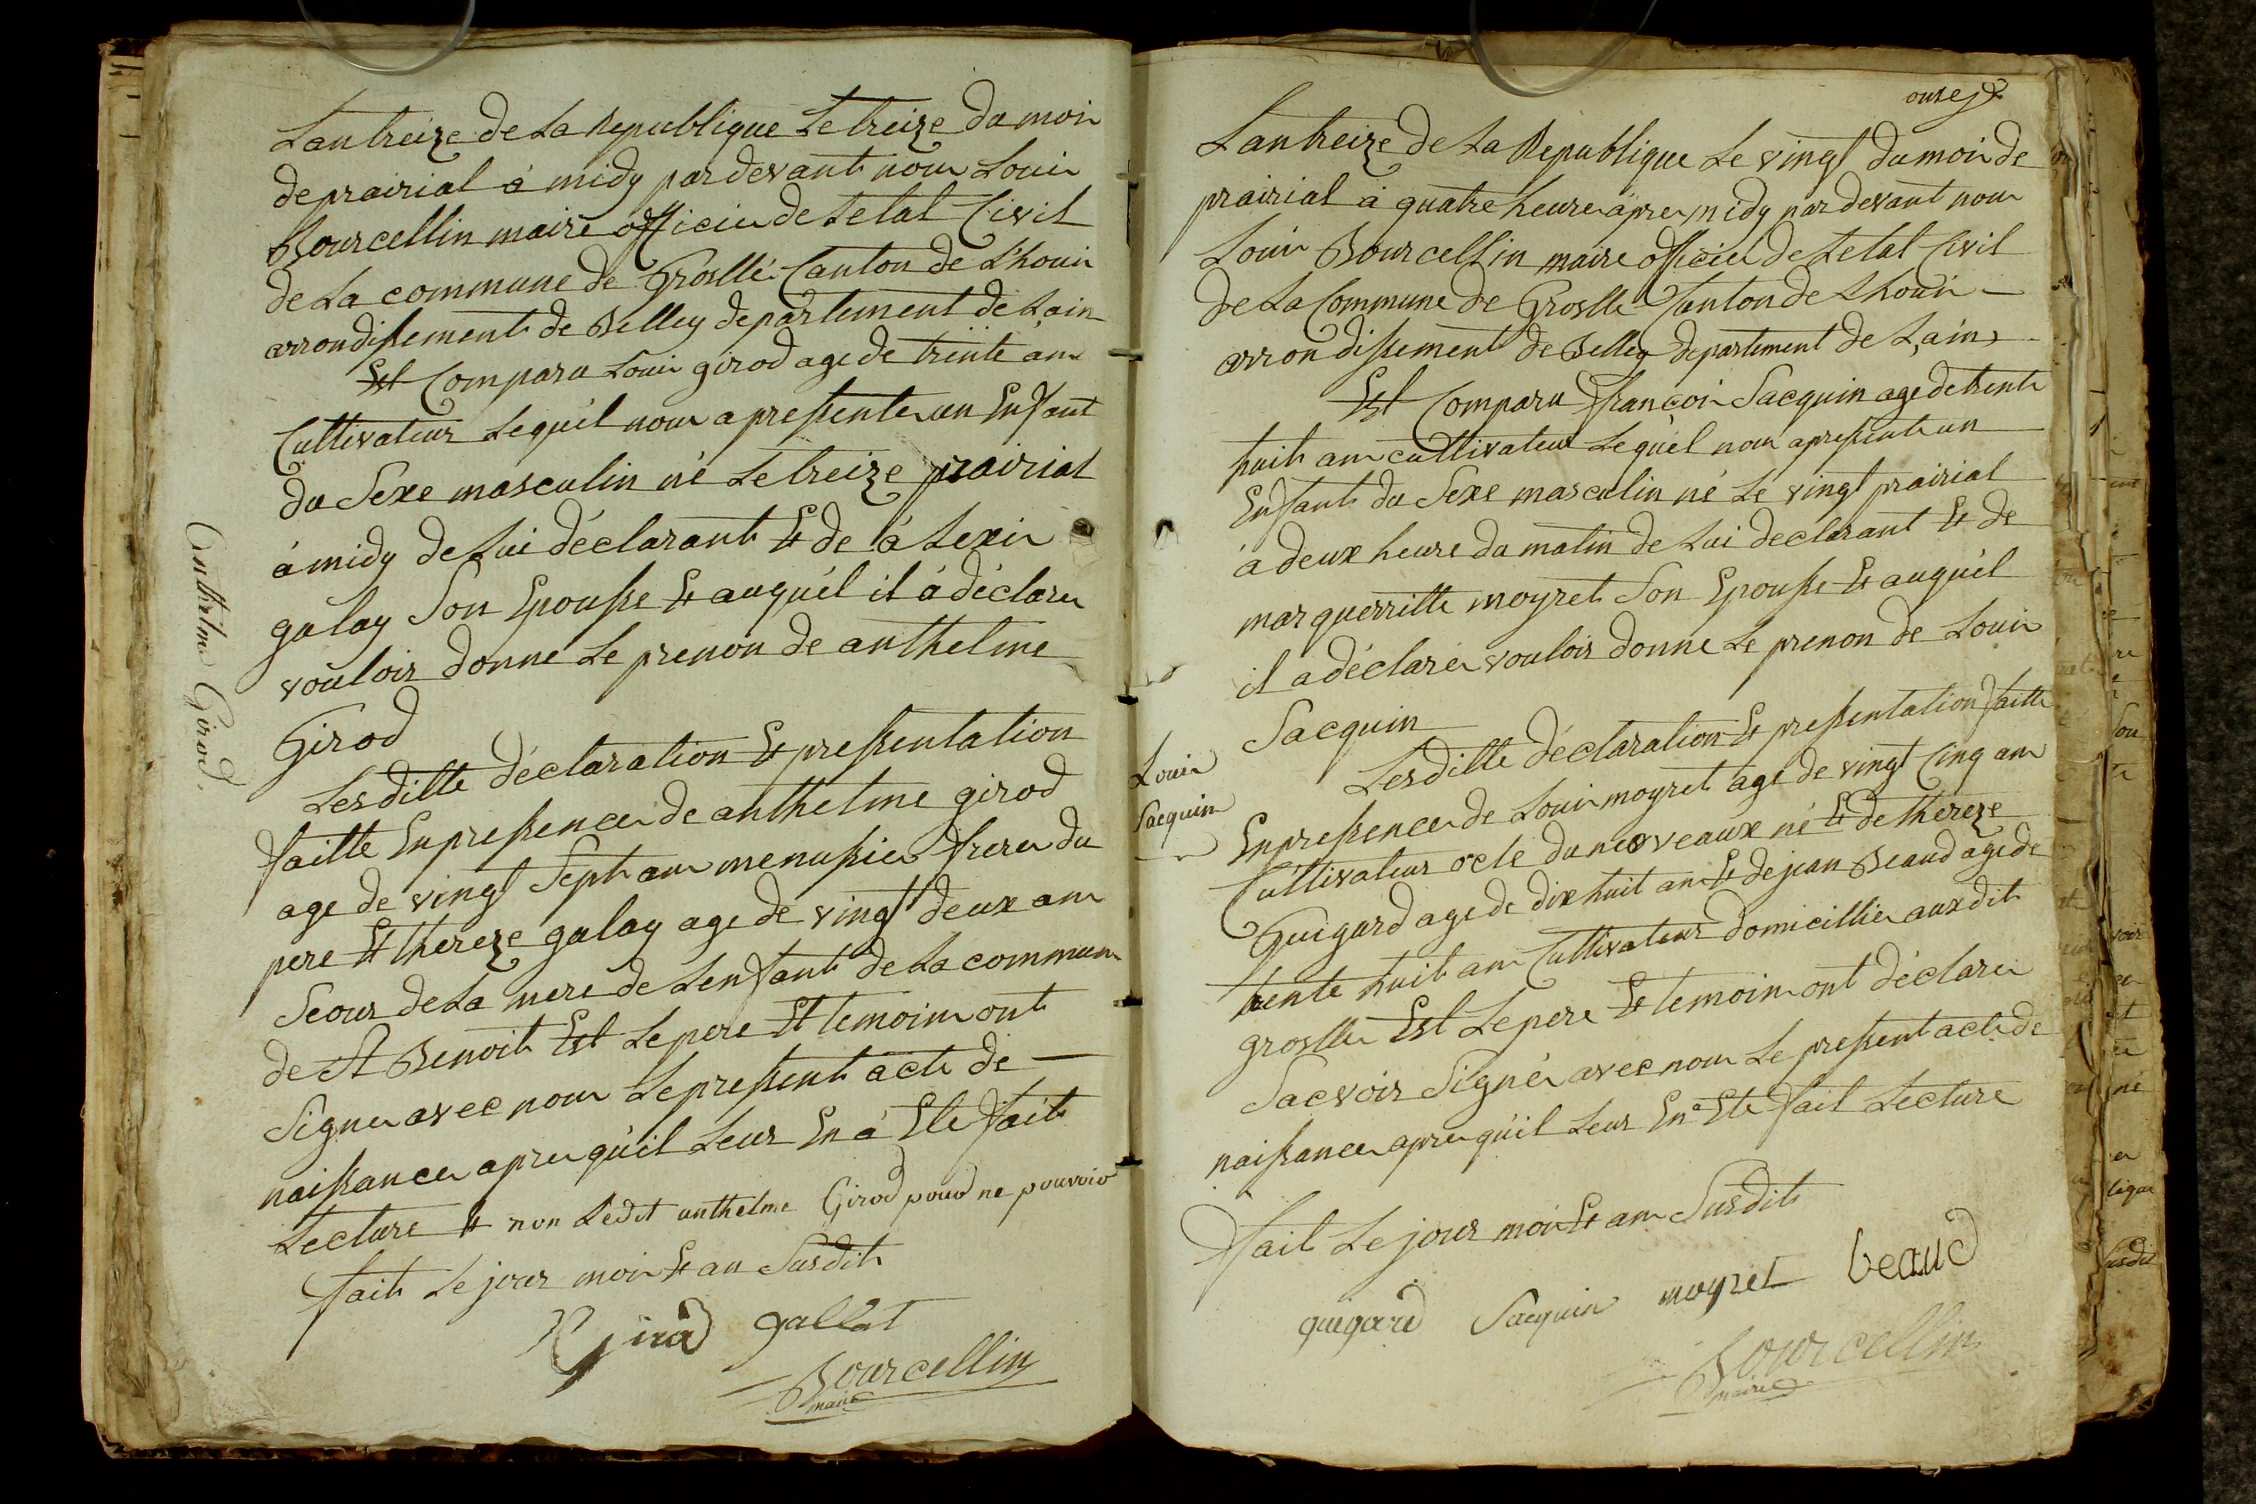 Lan treize de La Republique Le treize du mois
de prairial à midy par devant nous Louis
Bourcellin maire officier de Letat Civil
de La commune de Groslle Canton de Lhouis
arrondissement de Belley departement de Lain
Est Comparu Louis girod age de trente ans
Cultivateur Lequel nous a pressente un Enfant
du Sexe masculin né Le treize prairial
à midy de Lui déclarant Et de à Lexis
galay Son Epousse Et auquel il à déclarer
vouloir donne Le prenon de anthelme
Girod
Les ditte déclaration Et pressentation
faitte En pressence de anthelme girod
age de vingt Sept ans menussier frere du
pere Et thereze galay age de vingt deux ans
Seour de La mere de Lenfant de La commune
de St Benoit Est Le pere Et temoins ont
Signer avec nous Le pressent acte de
naissance apres quil Leur En à Ete fait
Lecture Et non Ledit anthelme Girod pour ne pouvoir
fait Le jour mois Et an Susdit
Girod gallet
Bourcellin
maire
Anthelme Girod
onze
Lan treize de La Republique Le vingt du mois de
prairial à quatre heure apres midy par devant nous
Louis Bourcellin maire officier de Letat Civil
de La Commune de Groslle Canton de Lhouis
arrondissement de Belley departement de Lain
Est Comparu françois Sacquin age de trente
huit ans cultivateur Lequel nous a pressente un
Enfant du Sexe masculin né Le vingt prairial
à deux heure du matin de Lui declarant Et de
marguerritte moyret Son Epousse Et auquel
il a déclarer vouloir donne Le prenon de Louis
Sacquin
Les ditte déclaration Et pressentation faitte
En pressence de Louis moyret age de vingt Cinq ans
Cultivateur ocle du nouveaux né Et de thereze
Guigard age de dix huit ans Et de jean Beaud age de
trente huit ans Cultivateur domicillier aux dit
groslle Est Le pere Et temoins ont déclarer
Sacvoir Signer avec nous Le pressent acte de
naissance apres quil Leur En a Ete fait Lecture
fait Le jour mois Et an Susdit
guigard Sacquin moyret beaud
Bourcellin
maire
Louis
Sacquin